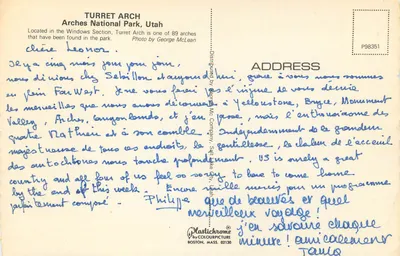 TURRET ARCH
Arches National Park, Utah
Located in the Windows Section, Turret Arch is one of 89 arches
that have been found in the park. Photo by George McLean
Chère Leonor.
Il y a cinq mois jour pour jour,
nous dînions chez et aujourd'hui, grâce à vous nous sommes
en plein Far West. Je ne vous ferai pas l'injure de vous décrire
les merveilles que nous avons découvertes à Yellowstone, Bryce, Monument
Valley, Arches, Canyonlands, et j'en passe, mais l'enthousiasme des
quatre Mathieu et à son comble. Indépendamment de la grandeur
majestueuse de tous ces endroits, la gentillesse, la chaleur de l'accueil
des autochtones nous touche profondément. US is surely a great
country and all four of us feel so sorry to have to come home
by the end of this week. Encore mille mercis pour un programme
parfaitement composé. Philippe
que de beautés et quel
merveilleux voyage!
j'en savoure chaque
minute! amicalement
ADDRESS
P98351
Plastichrome
BY COLOURPICTURE
BOSTON, MASS. 02130